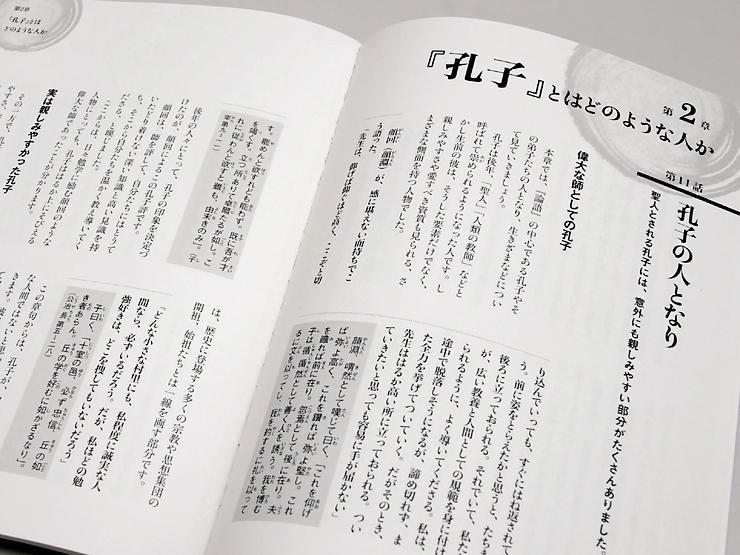 第2章
『孔子』とはどのような人か
第11話
孔子の人となり
聖人とされる孔子には、意外にも親しみやすい部分がたくさんありました。
偉大な師としての孔子
本章では、『論語』の中心である孔子やそ
の弟子たちの人となり、生きざまなどについ
て見ていきましょう。
孔子は後年、「聖人」「人類の教師」などと
呼ばれて崇められるようになった人です。し
かし生前の彼は、そうした要素だけでなく、
親しみやすさや愛すべき資質も見られる、さ
まざまな側面を持つ人物でした。
顔回（顔淵）が、感に堪えない面持ちでこ
う語った。
「先生は、仰げば仰ぐほど高く、こぞと切
り込んでいっても、すぐにはね返されて
う。前に姿をとらえたかと思うと、たちま
後ろに立っておられる。それでいて、私た
が、広い教養と人間としての規範を身に付け
られるように、よく導いてくださる。私は、
途中で脱落しそうになるが、諦め切れず、ま
た全力を挙げてついていく。だがそのとき、
先生ははるか高い所に立っておられる。つい
ていきたいと思っても容易に手が届かない」
顔淵、喟然として嘆じて曰く、「これを仰げ
ば弥よ高く、これを鑽れば弥よ堅し。これ
を瞻れば前に在り、忽焉として後に在り。夫
子は循循然として善く人を誘う。我を博む
るに文を以ってし、我を約するに礼を以って
第2章
『孔子』とは
どのような人か
す。罷めんと欲すれども能わず。既に吾が才
を竭くす。立つ所ありて卓爾たるが如し。こ
れに従わんと欲すと雖も、由末きのみ」（子
罕第九－一一）
後年の人々にとって、孔子の印象を決定づ
けたのが、顔回によるこの孔子評です。
顔回は、師を評して、自分たちにはとうて
いたどり着けない深い知識と高い見識を持
ち、そこから自分たちを温かく教え導いてく
ださる、と嘆じました。
ここからは、日々勉学に励む顔回のような
人物にとって、孔子ははるか上にそびえる
偉大な師であったことが分かります。
実は親しみやすかった孔子
その一方で、孔子
やすさ、
は、歴史に登場する多くの宗教や思想集団の
開祖、始祖たちとは一線を画す部分です。
「どんな小さな村里にも、私程度に誠実な人
間なら、必ずいるだろう。だが、私ほどの勉
強好きは、どこを捜してもいないだろう」
子曰く、「十室の邑、必ず忠信、丘の如
き者あらん。丘の学を好むに如かざるなり」。
（公冶長第五－二八）
この章句からは、孔子が、
な人間ではないと思